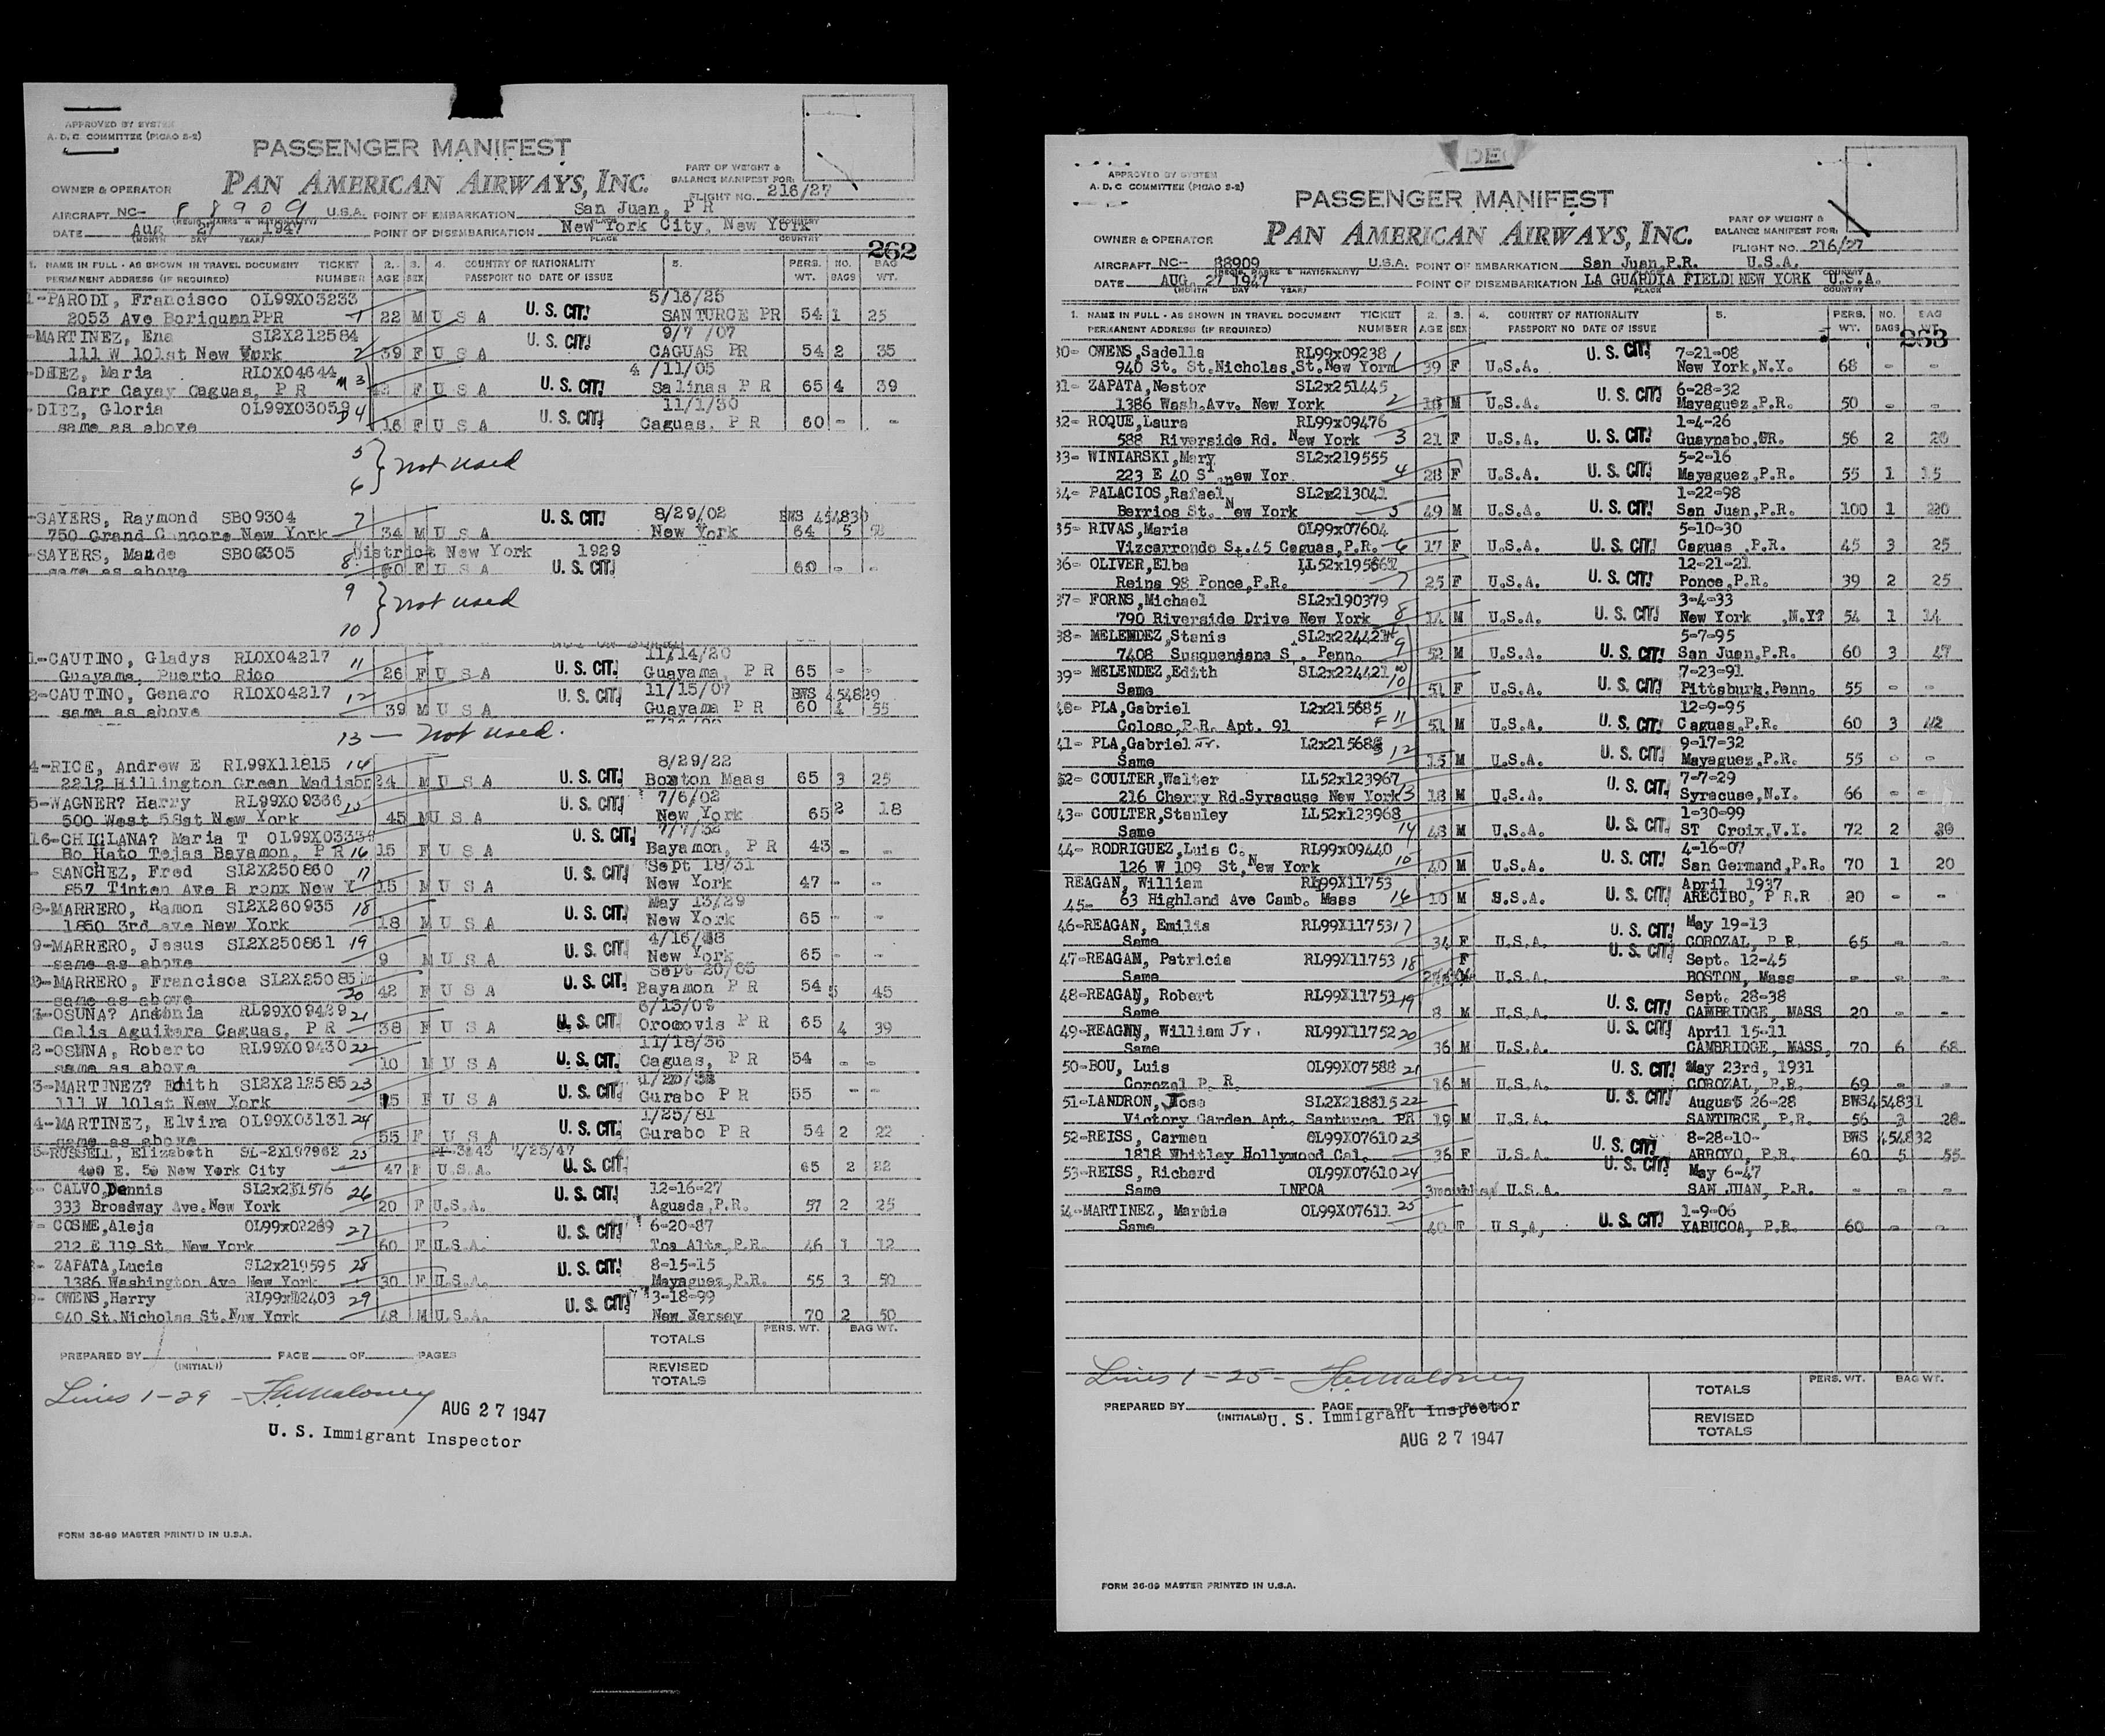 APPROVED BY SYSTEM
A. D. C. COMMITTEE (PICAO S-2)
PASSENGER MANIFEST
PAN AMERICAN AIRWAYS, INC.
PART OF WEIGHT &
BALANCE MANIFEST FOR:
OWNER & OPERATOR
FLIGHT NO. 216/27
AIRCRAFT NC- 8909 U.S.A. POINT OF EMBARKATION San Juan, P R
(REGIS. MARKS & NATIONALITY) PLACE COUNTRY
DATE Aug 27 1947 POINT OF DISEMBARKATION New York City, New York
(MONTH DAY YEAR) PLACE COUNTRY
262
1. NAME IN FULL - AS SHOWN IN TRAVEL DOCUMENT TICKET 2. 3. 4. COUNTRY OF NATIONALITY 5. PERS. NO. BAG
PERMANENT ADDRESS (IF REQUIRED) NUMBER AGE SEX PASSPORT NO DATE OF ISSUE WT. BAGS WT.
1-PARODI, Francisco OL99X03233 5/16/25
2053 Ave Boriquen PPR 1 22 M U S A U. S. CIT! SANTURCE PR 54 1 25
-MARTINEZ, Ena SI2X212584 U. S. CIT! 9/7 /07
111 W 101st New York 2 39 F U S A CAGUAS PR 54 2 35
Maria RLOX04644 4 /11/05
Carr Cayay Caguas, P R 3 F U S A U. S. CIT! Salinas P R 65 4 39
-DIEZ, Gloria OL99X03059 11/1/30
same as above 4 16 F U S A U. S. CIT! Caguas, P R 60 - -
5
6 } not used
-SAYERS, Raymond SB09304 7 U. S. CIT! 8/29/02 BWS 454830
750 Grand Concore New York 34 M U S A New York 64 5
-SAYERS, Maude District New York 1929
same as above 8 F U S A U. S. CIT! 60 - -
9
10 } not used
1-CAUTINO, Gladys RLOX04217 11 11/14/20
Guayama, Puerto Rico 26 F U S A U. S. CIT! Guayama, P R 65 - -
2-CAUTINO, Genaro RLOX04217 12 U. S. CIT! 11/15/07 BWS 454829
same as above 39 M U S A Guayama P R 60 4 55
13 — not used.
4-RICE, Andrew E RL99X11815 14 8/29/22
2212 Hillington Green Madison 24 M U S A U. S. CIT! Boxton Maas 65 3 25
5-WAGNER? Harry RL99X09366 15 U. S. CIT! 7/6/02
500 West 58st New York 45 M U S A New York 65 2 18
16-CHICLANA? Maria T U. S. CIT! 7/7/32
Bo Hato Tejas Bayamon, P R 16 15 F U S A Bayamon, P R 43 - -
- SANCHEZ, Fred SI2X250860 17 U. S. CIT! Sept 18/31
857 Tinten Ave B ronx New Y 15 M U S A New York 47 - -
8-MARRERO, Ramon SI2X260935 18 U. S. CIT! May 13/29
1850 3rd ave New York 18 M U S A New York 65 - -
9-MARRERO, Jesus SL2X250861 19 U. S. CIT!
same as above 9 M U S A New York 65 - -
MARRERO, Francisca 20 U. S. CIT! Sept 20/05
same as above 42 F U S A Bayamon P R 54 5 45
OSUNA? Antonia RL99X09429 21 6/13/09
Calis Aguilera Caguas, P R 38 F U S A U. S. CIT! Orocovis P R 65 4 39
2-OSUNA, Roberto RL99X09430 22 11/18/36
same as above 10 M U S A U. S. CIT! Caguas, P R 54 - -
3-MARTINEZ? Edith SI2X212585 23
111 W 101st New York F U S A U. S. CIT! Gurabo P R 55 - -
4-MARTINEZ, Elvira OL99X03131 24 1/25/81
same as above 55 F U S A U. S. CIT! Gurabo P R 54 2 22
5-RUSSELL, Elizabeth SL-2X197962 25 7/25/47
E. 50 New York City 47 F U.S.A. U. S. CIT! 65 2 22
- CALVO, Dennis SL2x231576 26 U. S. CIT! 12-16-27
333 Broadway Ave. New York 20 F U.S.A. Aguada, P.R. 57 2 25
- COSME, Aleja OL99x02269 27 U. S. CIT! 6-20-87
212 E 119 St. New York 60 F U.S.A. Toa Alta, P.R. 46 1 12
- ZAPATA, Lucia SL2x219595 28 U. S. CIT! 8-15-15
1386 Washington Ave New York 30 F U.S.A. Mayaguez, P.R. 55 3 50
- OWENS, Harry RL99x12403 29 U. S. CIT! 3-18-99
940 St. Nicholas St. New York 48 M U.S.A. New Jersey 70 2 50
TOTALS PERS. WT. BAG WT.
PREPARED BY PAGE OF PAGES
(INITIALS)
REVISED TOTALS
Lines 1-29 - Maloney
AUG 27 1947
U. S. Immigrant Inspector
FORM 36-69 MASTER PRINTED IN U.S.A.
APPROVED BY SYSTEM
A. D. C. COMMITTEE (PICAO S-2)
PASSENGER MANIFEST
PAN AMERICAN AIRWAYS, INC.
PART OF WEIGHT &
BALANCE MANIFEST FOR:
OWNER & OPERATOR
FLIGHT NO. 216/27
AIRCRAFT NC- 88909 U.S.A. POINT OF EMBARKATION San Juan, P.R. U.S.A.
(REGIS. MARKS & NATIONALITY) PLACE COUNTRY
DATE AUG. 27 1947 POINT OF DISEMBARKATION LA GUARDIA FIELD NEW YORK U.S.A.
(MONTH DAY YEAR) PLACE COUNTRY
1. NAME IN FULL - AS SHOWN IN TRAVEL DOCUMENT TICKET 2. 3. 4. COUNTRY OF NATIONALITY 5. PERS. NO. BAG
PERMANENT ADDRESS (IF REQUIRED) NUMBER AGE SEX PASSPORT NO DATE OF ISSUE WT. BAGS WT.
263
30- OWENS, Sadella RL99x09238 1 U. S. CIT! 7-21-08
940 St. St. Nicholas, St. New York 39 F U.S.A. New York, N.Y. 68 - -
31- ZAPATA, Nestor SL2x251445 U. S. CIT! 6-28-32
1386 Wash. Avv. New York 2 M U.S.A. Mayaguez, P.R. 50 - -
32- ROQUE, Laura RL99x09476 1-4-26
588 Riverside Rd. New York 3 21 F U.S.A. U. S. CIT! Guaynabo, 56 2 20
33- WINIARSKI, Mary SL2x219555 5-2-16
223 E 40 St new Yor 4 28 F U.S.A. U. S. CIT! Mayaguez, P.R. 55 1 15
34- PALACIOS, Rafael SL2x213041 1-22-98
Berrios St. New York 5 49 M U.S.A. U. S. CIT! San Juan, P.R. 100 1
35- RIVAS, Maria OL99x07604 5-10-30
Vizcarrondo St. 45 Caguas, P.R. 6 17 F U.S.A. U. S. CIT! Caguas, P.R. 45 3 25
36- OLIVER, Elba 12-21-21
Reina 98 Ponce, P.R. 7 25 F U.S.A. U. S. CIT! Ponce, P.R. 39 2 25
37- FORNS, Michael SL2x190379 8 3-4-33
790 Riverside Drive New York 14 M U.S.A. U. S. CIT! New York , N.Y? 54 1 14
38- MELENDEZ, Stanis SL2x224421 9 5-7-95
7408 Susquenjana S . Penn. 52 M U.S.A. U. S. CIT! San Juan, P.R. 60 3 47
39- MELENDEZ, Edith SL2x224421 10 7-23-91
Same 51 F U.S.A. U. S. CIT! Pittsburk, Penn. 55 - -
40- PLA, Gabriel L2x215685 11 12-9-95
Coloso, P.R. Apt. 91 51 M U.S.A. U. S. CIT! Caguas, P.R. 60 3 42
41- PLA, Gabriel Jr. 12 9-17-32
Same 15 M U.S.A. U. S. CIT! Mayaguez, P.R. 55 - -
42- COULTER, Walter LL52x123967 7-7-29
216 Cherry Rd. Syracuse New York 13 18 M U.S.A. U. S. CIT! Syracuse, N.Y. 66 - -
43- COULTER, Stanley LL52x123968 1-30-99
Same 14 48 M U.S.A. U. S. CIT! ST Croix, V.I. 72 2 30
44- RODRIGUEZ, Luis C. RL99x09440 15 4-16-07
126 W 109 St, New York 40 M U.S.A. U. S. CIT! San Germand, P.R. 70 1 20
REAGAN, William RL99X11753 April 1937
45- 63 Highland Ave Camb. Mass 16 10 M U.S.A. U. S. CIT! ARECIBO, P R.R 20 - -
46-REAGAN, Emilia RL99X11753 17 U. S. CIT! May 19-13
Same 34 F U.S.A. COROZAL, P.R. 65 - -
47-REAGAN, Patricia RL99X11753 18 F U. S. CIT! Sept. 12-45
Same U.S.A. BOSTON, Mass - - -
48-REAGAN, Robert RL99X11753 19 U. S. CIT! Sept. 28-38
Same 8 M U.S.A. CAMBRIDGE, MASS 20 - -
49-REAGAN, William Jr. RL99X11752 20 U. S. CIT! April 15-11
Same 36 M U.S.A. CAMBRIDGE, MASS, 70 6 68
50-BOU, Luis OL99X07588 21 U. S. CIT! May 23rd, 1931
Corozal P. R. 16 M U.S.A. COROZAL, P.R. 69 - -
51-LANDRON, Jose SL2X218815 22 U. S. CIT! August 26-28 BWS 454831
Victory Garden Apt. Santurce PR 19 M U.S.A. SANTURCE, P.R. 56 3 28
52-REISS, Carmen OL99X07610 23 U. S. CIT! 8-28-10- BWS 454832
1818 Whitley Hollywood Cal. 36 F U.S.A. ARROYO, P.R. 60 5 55
53-REISS, Richard OL99X07610 24 U. S. CIT! May 6-47
Same INFOA 3 months U.S.A. SAN JUAN, P.R. - - -
54-MARTINEZ, OL99X07611 25 1-9-06
Same 40 F U.S.A, U. S. CIT! YABUCOA, P.R. 60 - -
Lines 1-25- Maloney
TOTALS PERS. WT. BAG WT.
PREPARED BY PAGE OF PAGES
(INITIALS) U. S. Immigrant Inspector
REVISED TOTALS
AUG 27 1947
FORM 36-69 MASTER PRINTED IN U.S.A.